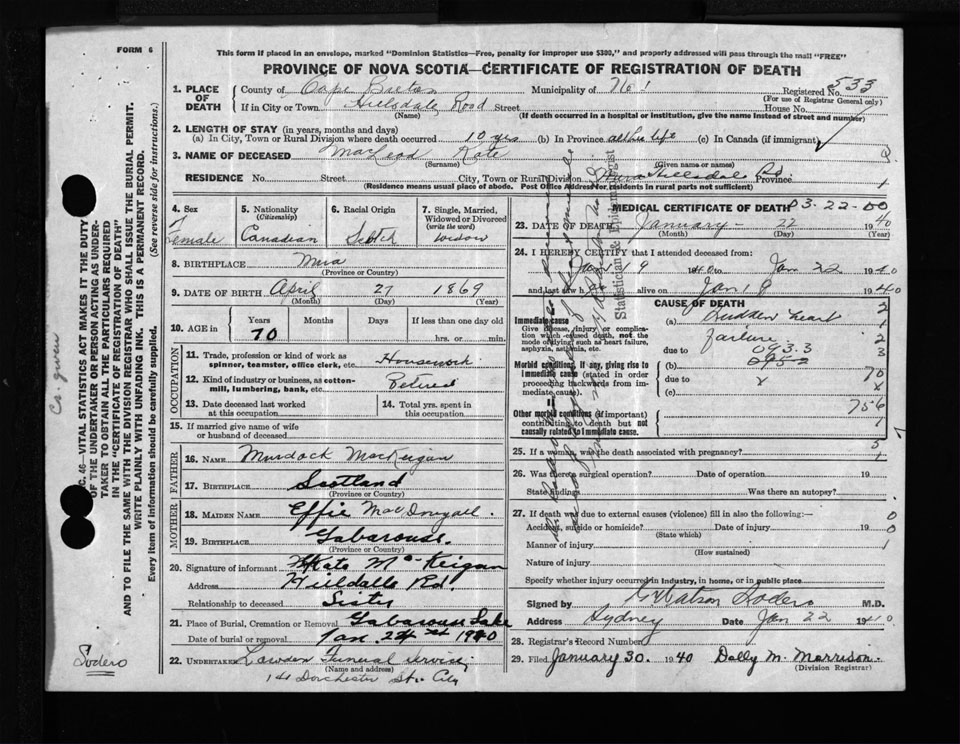 FORM 6
This form if placed in an envelope, marked "Dominion Statistics—Free, penalty for improper use $300," and properly addressed will pass through the mail "FREE"
PROVINCE OF NOVA SCOTIA—CERTIFICATE OF REGISTRATION OF DEATH
1. PLACE OF DEATH
County of Cape Breton Municipality of No 1 Registered No. 533
(For use of Registrar General only)
If in City or Town Hillsdale Road Street House No.
(Name) (If death occurred in a hospital or institution, give the name instead of street and number)
2. LENGTH OF STAY (in years, months and days)
(a) In City, Town or Rural Division where death occurred 10 yrs (b) In Province all her life (c) In Canada (if immigrant)
3. NAME OF DECEASED MacLeod Kate
(Surname) (Given name or names)
RESIDENCE No. Street City, Town or Rural Division Hillsdale Rd Province
(Residence means usual place of abode. Post Office Address for residents in rural parts not sufficient)
4. Sex Female
5. Nationality (Citizenship) Canadian
6. Racial Origin Scotch
7. Single, Married, Widowed or Divorced (write the word) widow
8. BIRTHPLACE Mira
(Province or Country)
9. DATE OF BIRTH April 27 1869
(Month) (Day) (Year)
10. AGE in Years Months Days If less than one day old
70 hrs. or min.
OCCUPATION
11. Trade, profession or kind of work as spinner, teamster, office clerk, etc. Housework
12. Kind of industry or business, as cotton-mill, lumbering, bank, etc. Retired
13. Date deceased last worked at this occupation
14. Total yrs. spent in this occupation
15. If married give name of wife or husband of deceased
FATHER
16. Name Murdock MacKeigan
17. BIRTHPLACE Scotland
(Province or Country)
MOTHER
18. MAIDEN NAME Effie MacDougall.
19. BIRTHPLACE Gabarouse.
(Province or Country)
20. Signature of informant Kate McKeigan
Address Hilldalle Rd.
Relationship to deceased Sister
21. Place of Burial, Cremation or Removal Gabarouse Lake
Date of burial or removal Jan. 24 1940
22. UNDERTAKER Lawden Funeral service,
(Name and address)
14 Dorchester St. City
MEDICAL CERTIFICATE OF DEATH
P3-22-00
23. DATE OF DEATH January 22 1940
(Month) (Day) (Year)
24. I HEREBY CERTIFY that I attended deceased from:
Jan 19 1940 to Jan 22 1940
and last saw h alive on Jan 19 1940
CAUSE OF DEATH
Immediate cause
Give disease, injury or complication which caused death, not the mode of dying such as heart failure, asphyxia, asthenia, etc.
(a) Sudden heart
failure
due to
Morbid conditions, if any, giving rise to immediate cause (stated in order proceeding backwards from immediate cause).
(b)
due to
(c)
Other morbid conditions (if important) contributing to death but not causally related to immediate cause.
25. If a woman, was the death associated with pregnancy?
26. Was there a surgical operation? Date of operation 19
State findings Was there an autopsy?
27. If death was due to external causes (violence) fill in also the following:—
Accident, suicide or homicide? Date of injury 19
(State which)
Manner of injury
(How sustained)
Nature of injury
Specify whether injury occurred in industry, in home, or in public place
Signed by G Watson Sodero M.D.
Address Sydney Date Jan 22 1940
28. Registrar's Record Number
29. Filed January 30. 1940 Dolly M. Morrison.
(Division Registrar)
Statistician &
SEC. 46—VITAL STATISTICS ACT MAKES IT THE DUTY OF THE UNDERTAKER OR PERSON ACTING AS UNDERTAKER TO OBTAIN ALL THE PARTICULARS REQUIRED IN THE "CERTIFICATE OF REGISTRATION OF DEATH" AND TO FILE THE SAME WITH THE DIVISION REGISTRAR WHO SHALL ISSUE THE BURIAL PERMIT.
WRITE PLAINLY WITH UNFADING INK. THIS IS A PERMANENT RECORD.
Every item of information should be carefully supplied. (See reverse side for instructions.)
Sodero